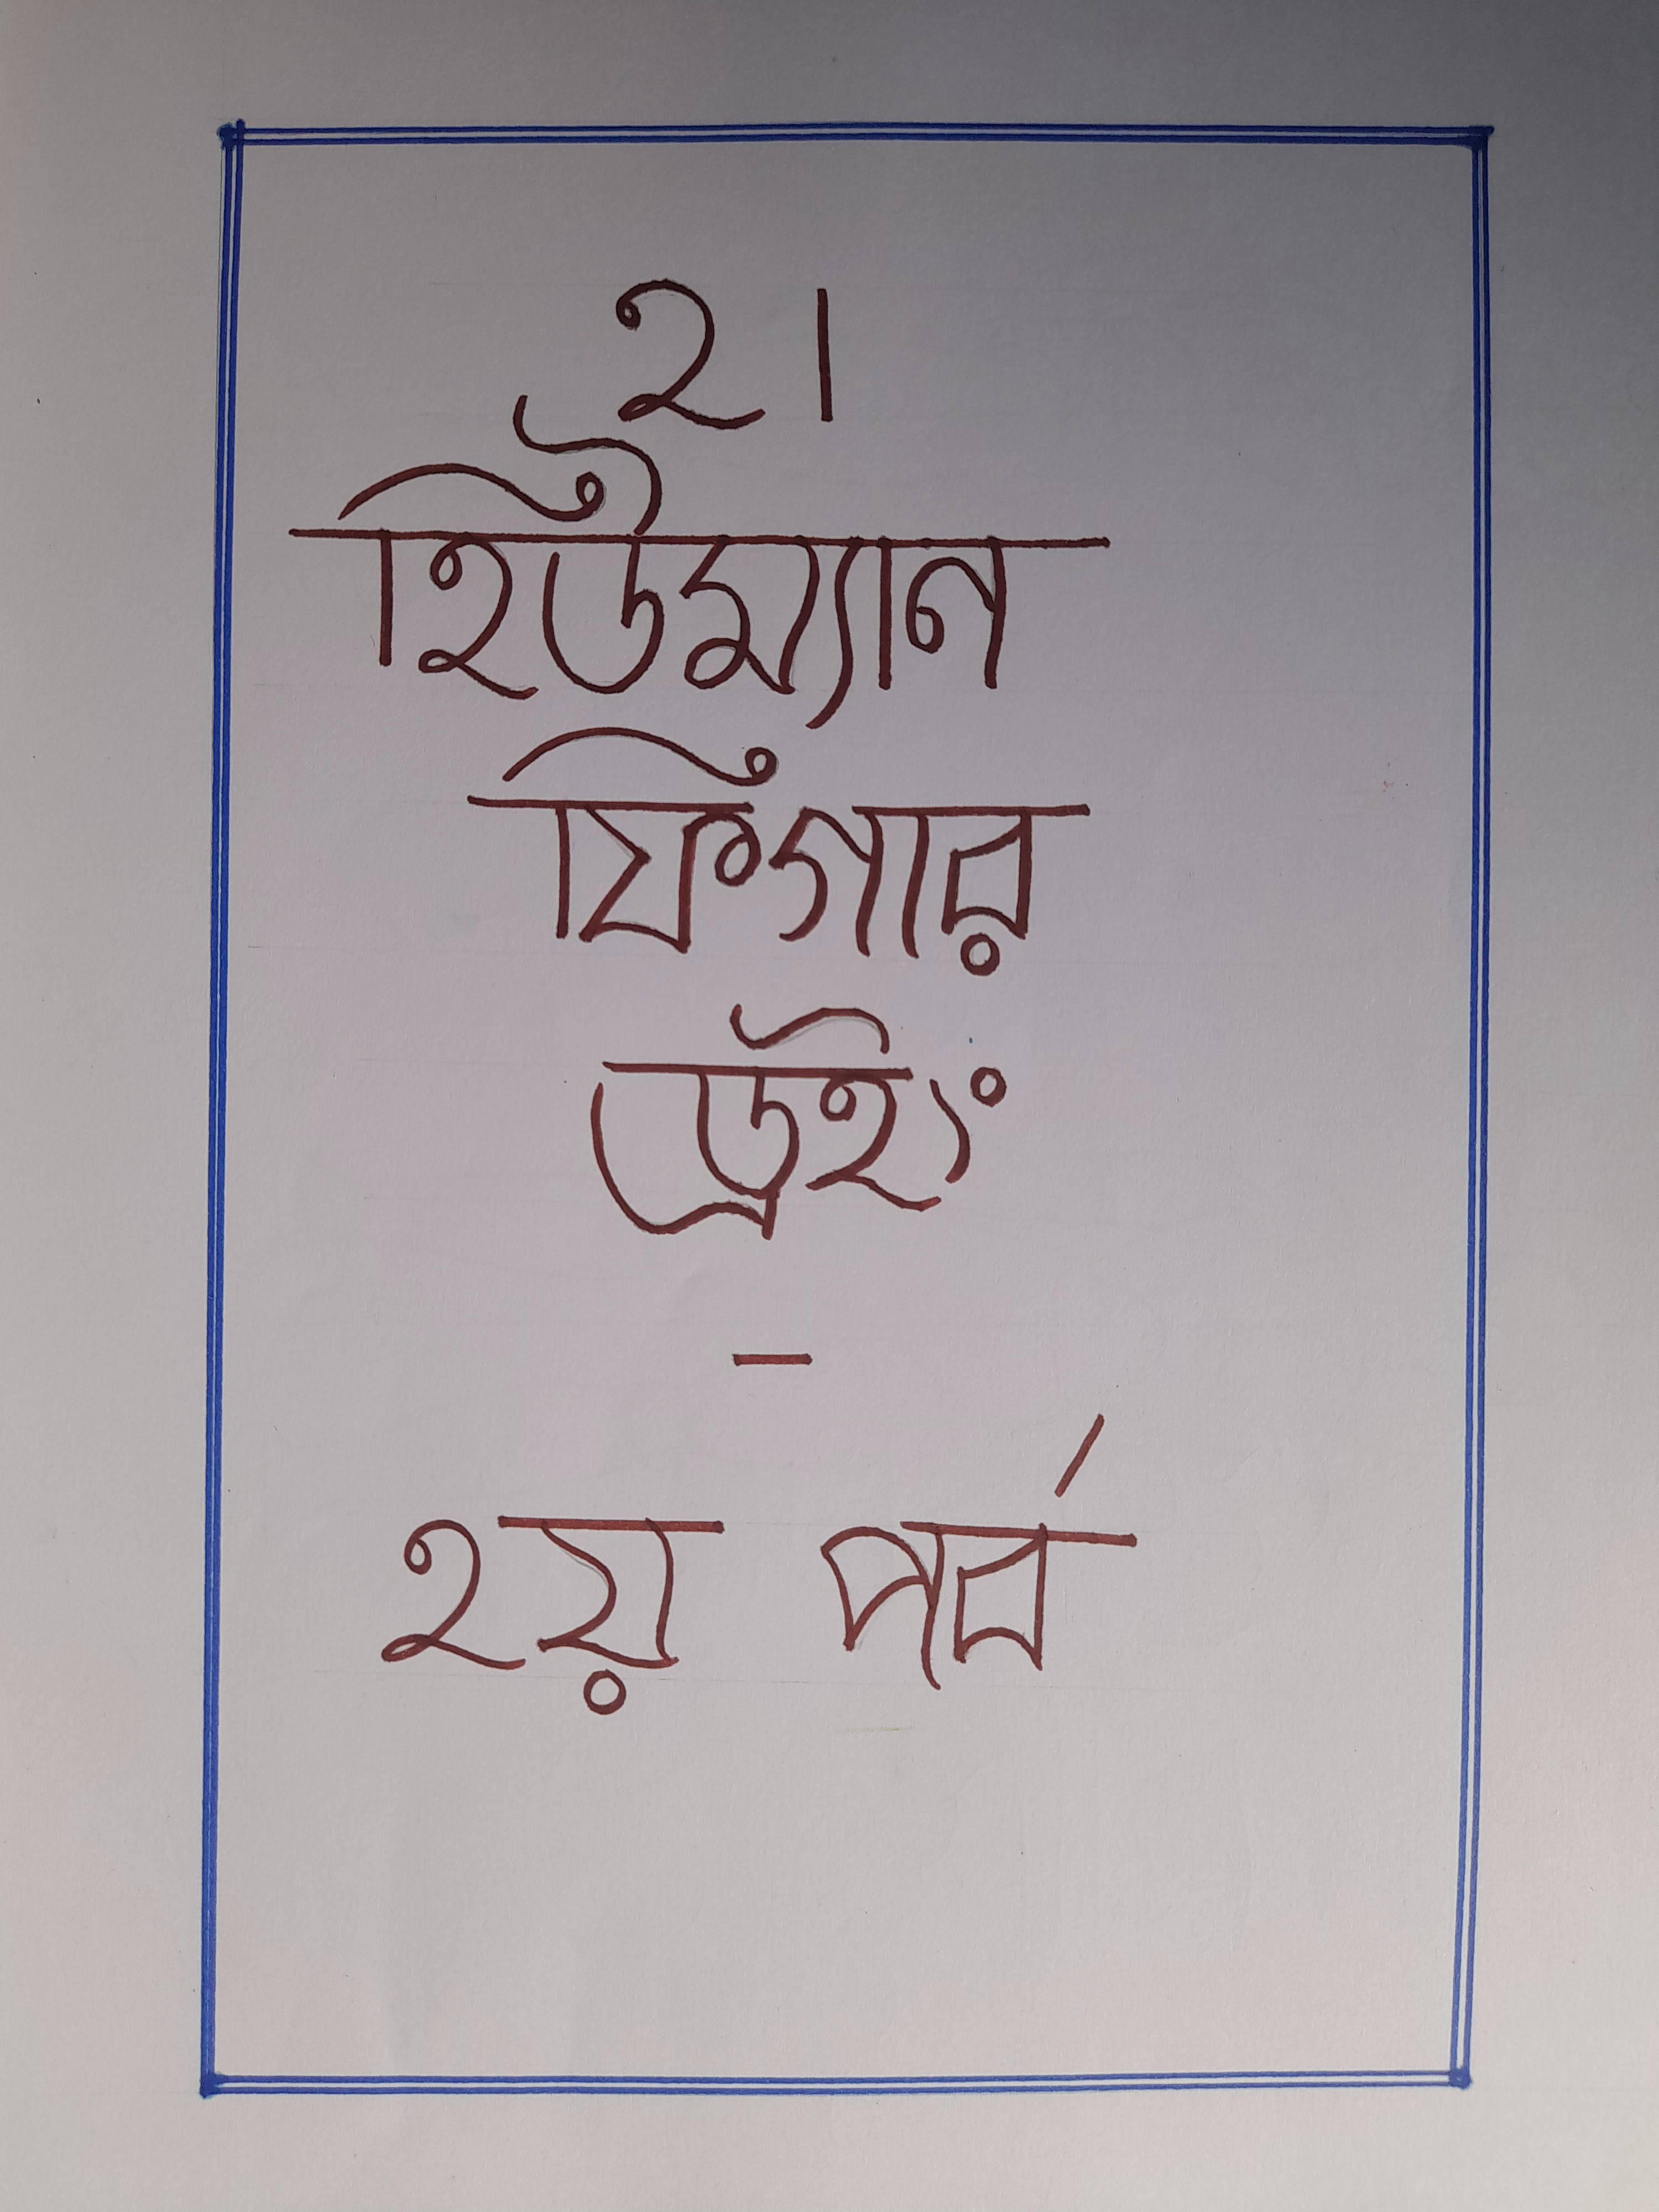 ২।
হিউম্যান
ফিগার
ড্রইং
-
২য় পর্ব